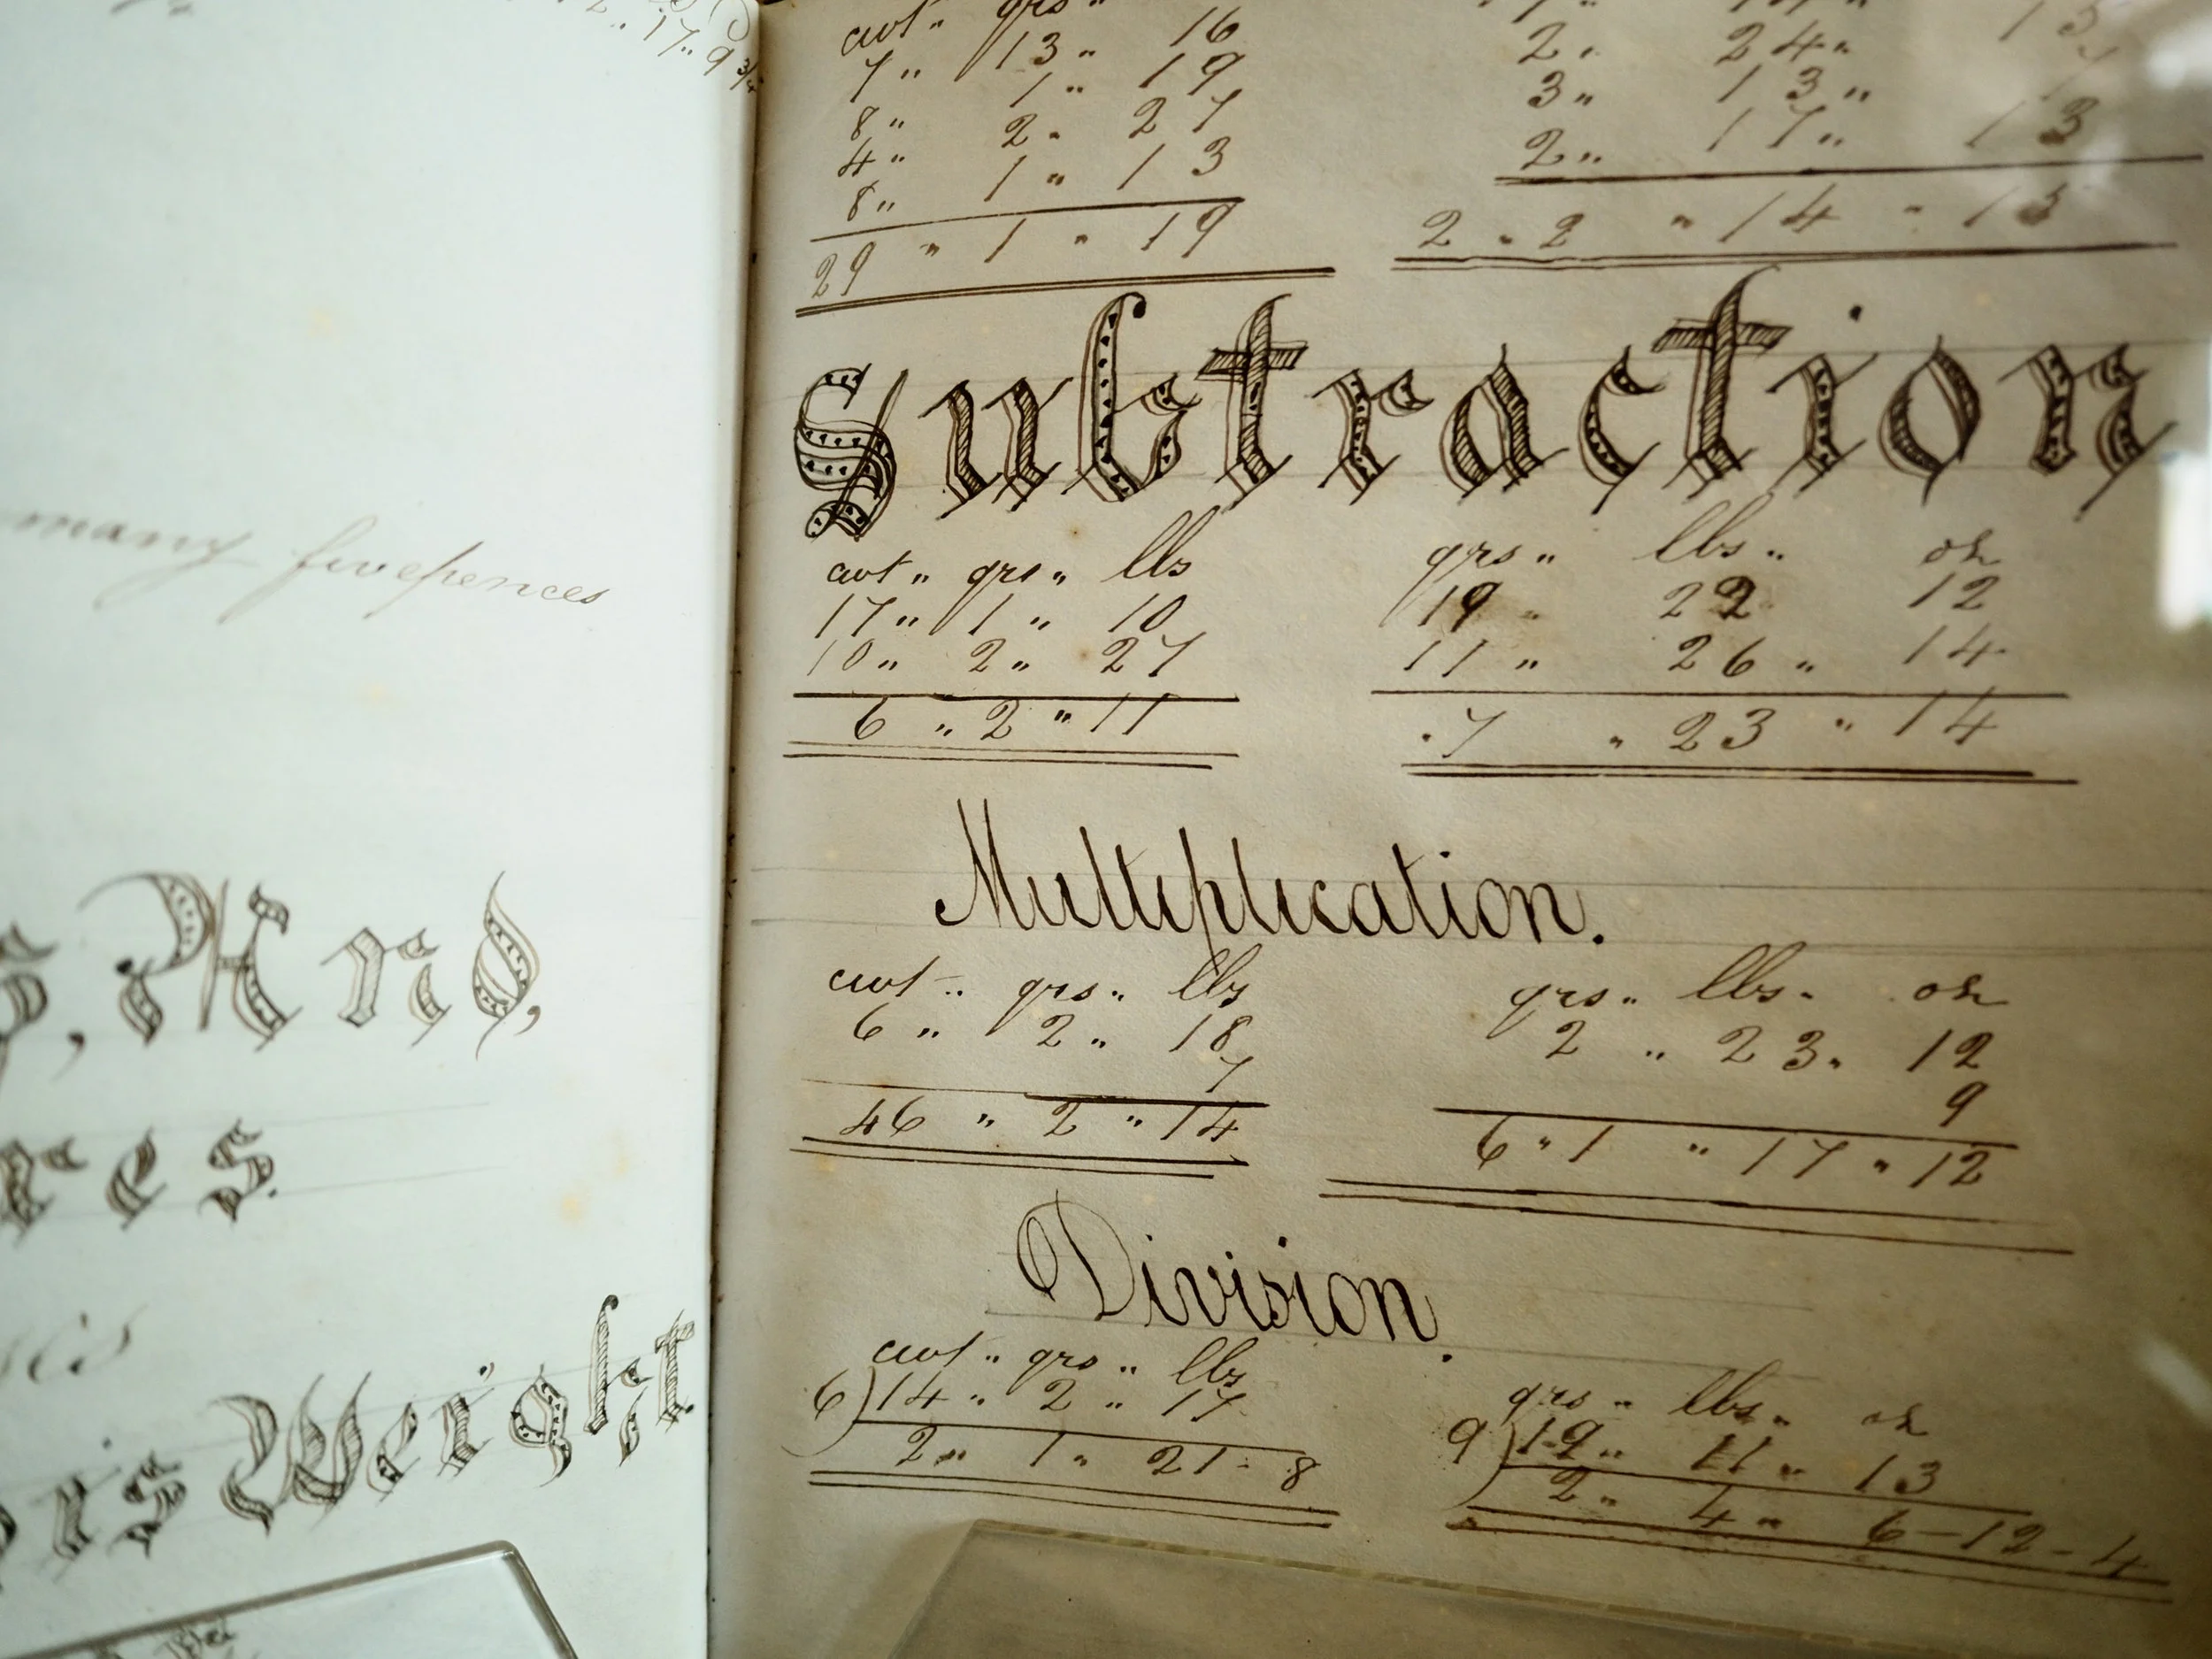 17 " 9 3/4
many fivepences
And,
res.
is Weight.
cwt " qrs "
7 " 13 " 16
8 " 1 " 19
4 " 2 " 27
8 " 1 " 13
29 " 1 " 19
2 " 24 "
3 " 13 "
2 " 17 " 13
2 " 2 " 14 " 13
Subtraction
cwt " qrs " lbs
17 " 1 " 10
10 " 2 " 27
6 " 2 " 11
qrs " lbs " oz
19 " 22 12
11 " 26 " 14
7 " 23 " 14
Multiplication.
cwt " qrs " lbs
6 " 2 " 18
7
46 " 2 " 14
qrs " lbs " oz
2 " 23 " 12
9
6 " 1 " 17 " 12
Division.
cwt " qrs " lbs
6)14 " 2 " 17
2 " 1 " 21 - 8
qrs " lbs " oz
9)19 " 11 " 13
2 " 4 " 6 - 12 - 4